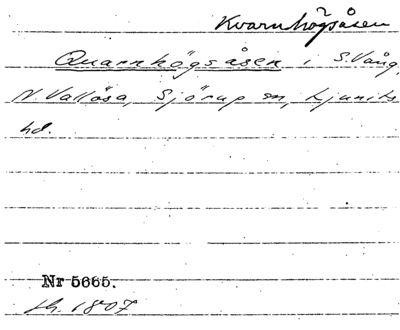 Kvarnhögsåsen
Quarnhögsåsen i S. Vång,
N. Vallösa, Sjörup sn, Ljunits
hd.
Nr 5665.
1807